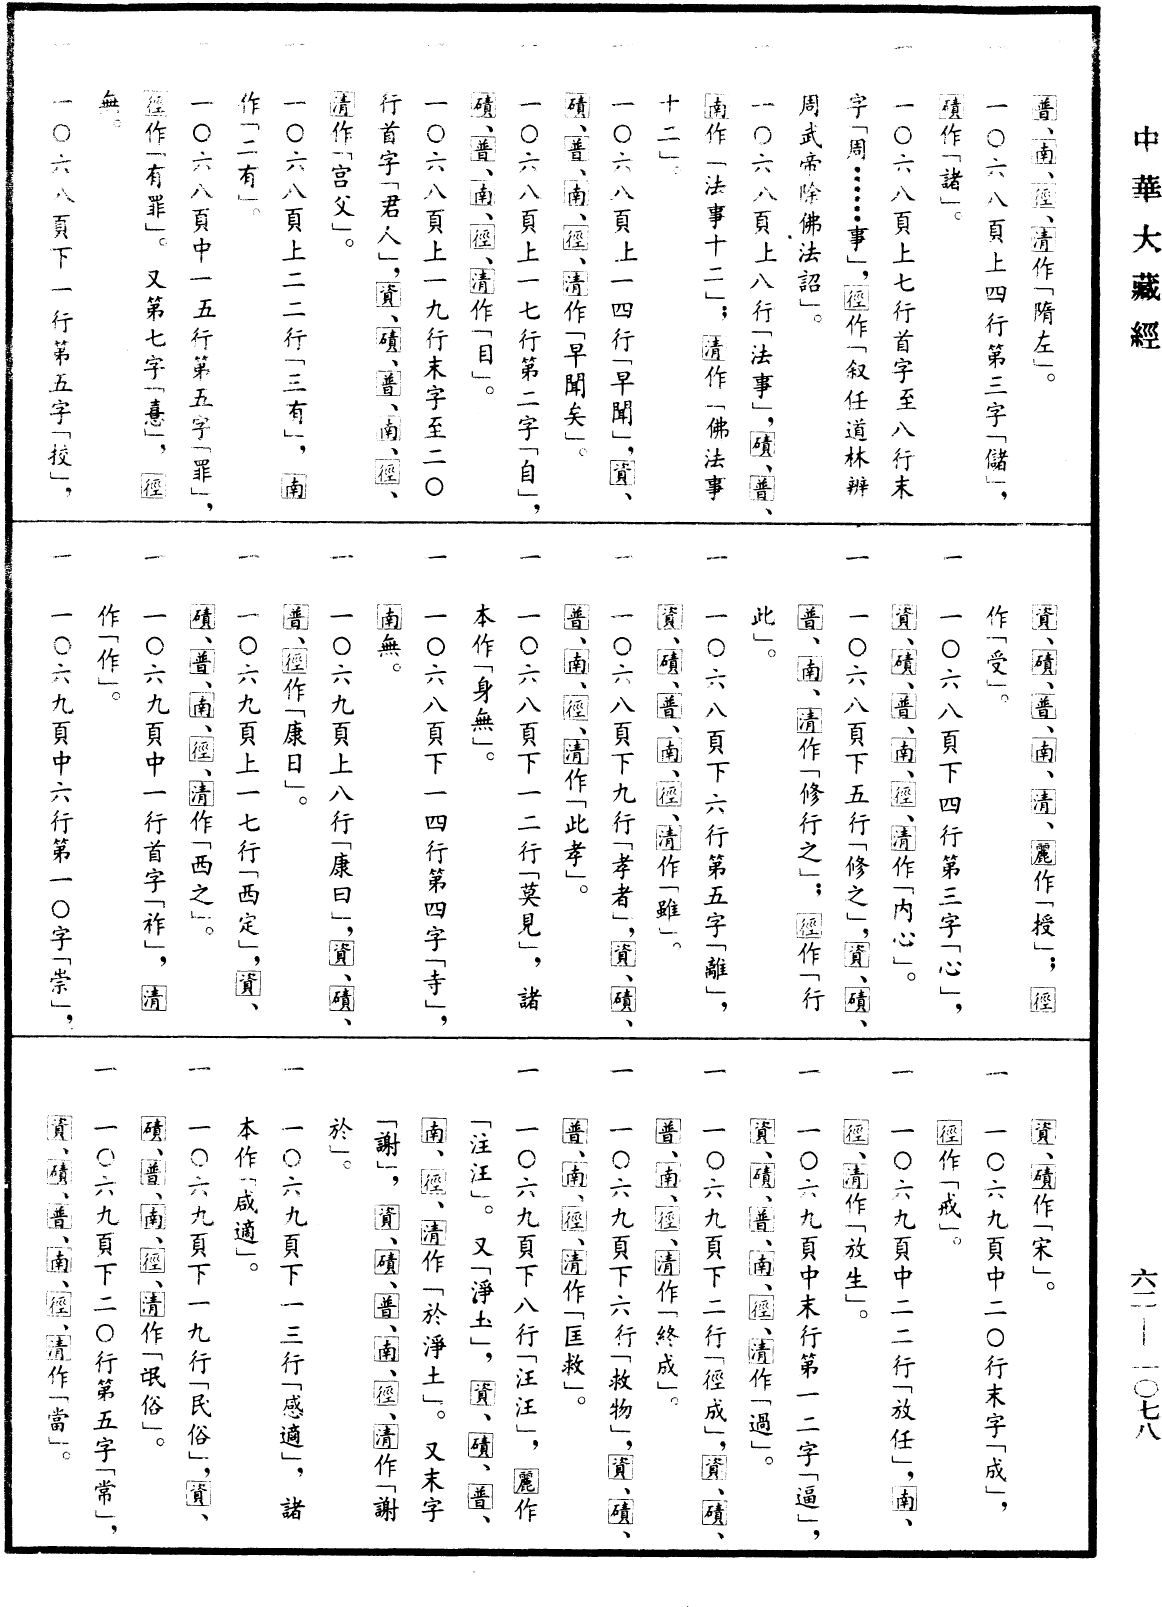 中華大藏經
普、南、徑、清作「隋左」。
一 一〇六八頁上四行第三字「儲」，
磧作「諸」。
一 一〇六八頁上七行首字至八行末
字「周……事」，徑作「叙任道林辨
周武帝除佛法詔」。
一 一〇六八頁上八行「法事」，磧、普、
南作「法事十二」；清作「佛法事
十二」。
一 一〇六八頁上一四行「早聞」，資、
磧、普、南、徑、清作「早聞矣」。
一 一〇六八頁上一七行第二字「自」，
磧、普、南、徑、清作「目」。
一 一〇六八頁上一九行末字至二〇
行首字「君人」，資、磧、普、南、徑、
清作「宫父」。
一 一〇六八頁上二二行「三有」，南
作「二有」。
一 一〇六八頁中一五行第五字「罪」，
徑作「有罪」。又第七字「憙」，徑
無。
一 一〇六八頁下一行第五字「挍」，
資、磧、普、南、清、麗作「授」；徑
作「受」。
一 一〇六八頁下四行第三字「心」，
資、磧、普、南、徑、清作「内心」。
一 一〇六八頁下五行「修之」，資、磧、
普、南、清作「修行之」；徑作「行
此」。
一 一〇六八頁下六行第五字「離」，
資、磧、普、南、徑、清作「雖」。
一 一〇六八頁下九行「孝者」，資、磧、
普、南、徑、清作「此孝」。
一 一〇六八頁下一二行「莫見」，諸
本作「身無」。
一 一〇六八頁下一四行第四字「寺」，
南無。
一 一〇六九頁上八行「康曰」，資、磧、
普、徑作「康日」。
一 一〇六九頁上一七行「西定」，資、
磧、普、南、徑、清作「西之」。
一 一〇六九頁中一行首字「祚」，清
作「作」。
一 一〇六九頁中六行第一〇字「崇」，
資、磧作「宋」。
一 一〇六九頁中二〇行末字「成」，
徑作「戒」。
一 一〇六九頁中二二行「放任」，南、
徑、清作「放生」。
一 一〇六九頁中末行第一二字「逼」，
資、磧、普、南、徑、清作「過」。
一 一〇六九頁下二行「徑成」，資、磧、
普、南、徑、清作「終成」。
一 一〇六九頁下六行「救物」，資、磧、
普、南、徑、清作「匡救」。
一 一〇六九頁下八行「汪汪」，麗作
「注汪」。又「淨土」，資、磧、普、
南、徑、清作「於淨土」。又末字
「謝」，資、磧、普、南、徑、清作「謝
於」。
一 一〇六九頁下一三行「感適」，諸
本作「咸適」。
一 一〇六九頁下一九行「民俗」，資、
磧、普、南、徑、清作「氓俗」。
一 一〇六九頁下二〇行第五字「常」，
資、磧、普、南、徑、清作「當」。
六二——一〇七八